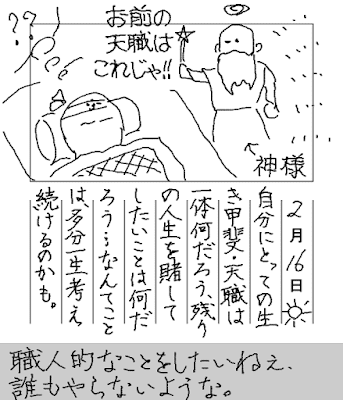 ??
お前の
天職は
これじゃ!!
神様
2月16日
自分にとっての生
き甲斐・天職は
一体何だろう、残り
の人生を賭して
したいことは何だ
ろう…なんてこと
は、多分一生考え
続けるのかも。
職人的なことをしたいねぇ、
誰もやらないような。